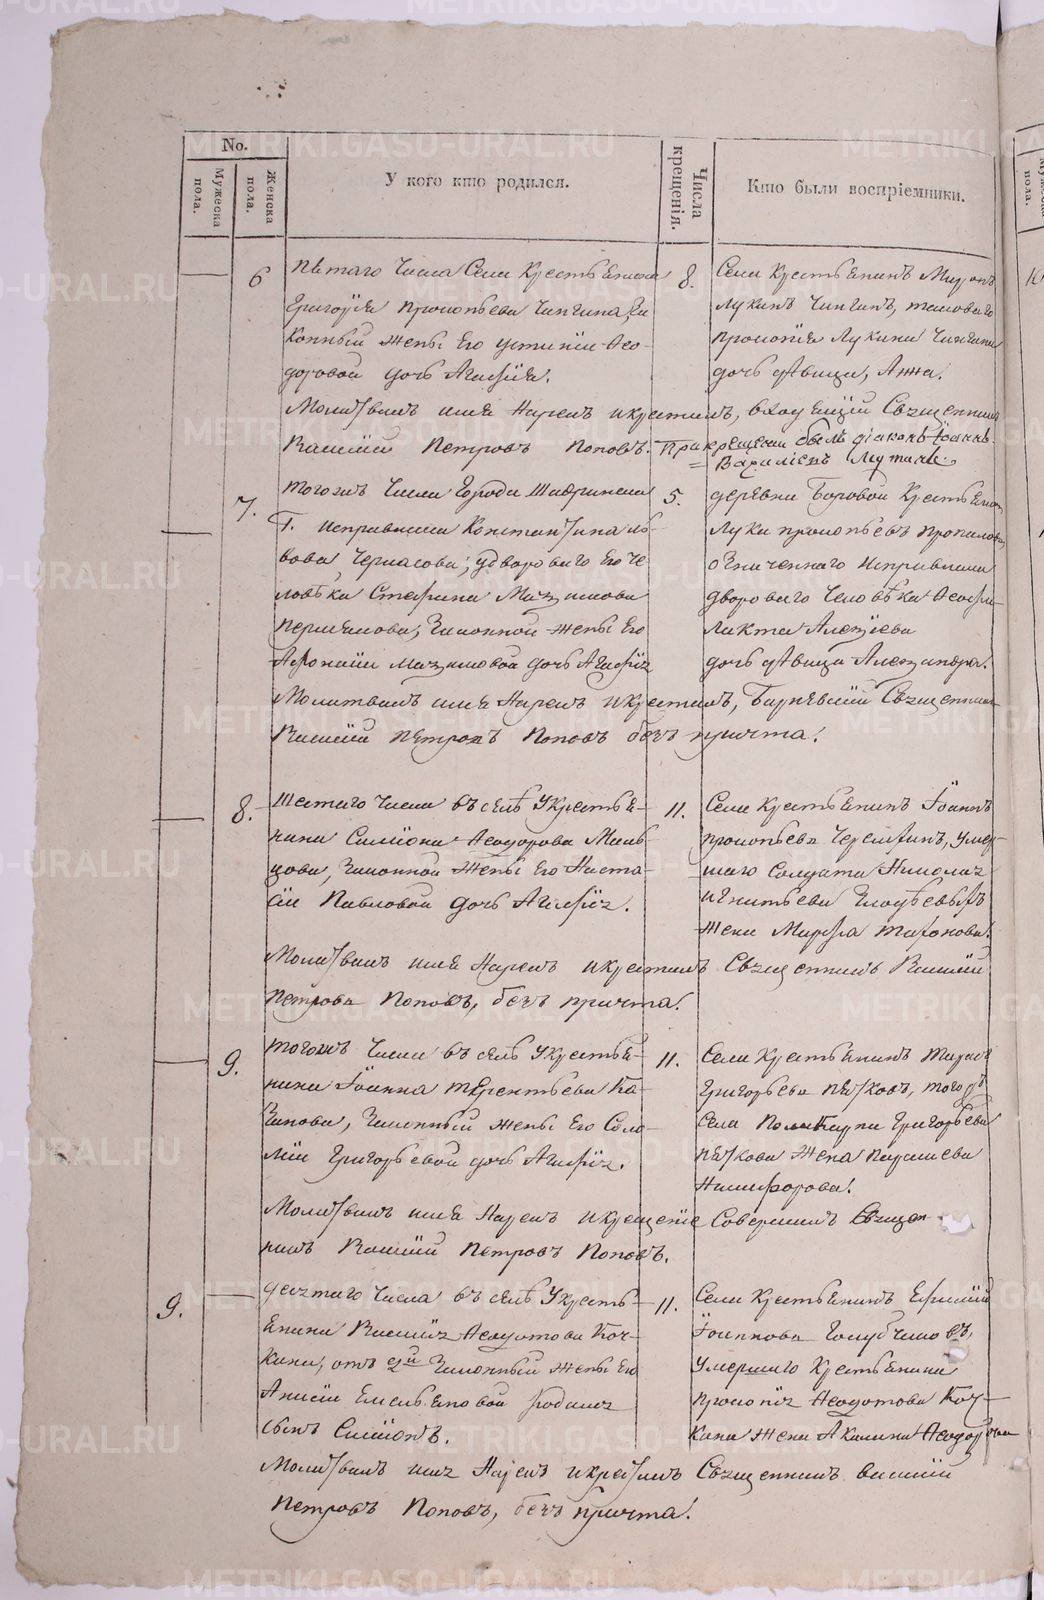 No.
Мужеска пола.
Женска пола.
У кого кто родился.
Числа крещенія.
Кто были воспріемники.
6
Пятаго числа Села Крестьянина
Григорія Прокопьева Чингина, за
конныя жены Его Устиніи Ѳео-
доровой дочь Агафія.
8.
Села Крестьянинъ Миронъ
Лукинъ Чингинъ, таковаго
Прокопія Лукина Чингина
дочь дѣвица, Анна.
Молитвилъ имя Нарекъ и крестилъ, Священникъ
Василій Петровъ Поповъ. При крещеніи былъ діаконъ Іоаннъ
7.
Тогожъ Числа Города Шадринска
Г. Исправника Константина Ль
вова Черкасова; у двороваго Его че
ловѣка Стефана Максимова
Пермякова, Законной жены Его
Афонасіи Максимовой дочь Агафія
5.
деревни Боровой Крестьянинъ
Лука Прокопьевъ
означеннаго Исправника
двороваго Человѣка Ѳеофи-
лакта Алексіева
дочь дѣвица Александра.
Молитвилъ имя Нарекъ и крестилъ, Священникъ
Василій Петровъ Поповъ безъ причта.
8.
Шестаго Числа въ селѣ У Крестья-
нина Симіона Ѳеодорова Маль-
цова, Законной жены Его Наста-
сіи Павловой дочь Агафія.
11.
Села Крестьянинъ Іоаннъ
Прокопьевъ Черемхинъ, умер-
шаго Солдата Николая
Игнатьева
жена Марфа Тихонова.
Молитвилъ имя Нарекъ и крестилъ Священникъ Василій
Петровъ Поповъ, безъ причта.
9.
Тогожъ Числа въ селѣ У Крестья-
нина Іоанна Терентьева Ка-
закова, Законныя жены Его Соло-
міи Григорьевой дочь Агафія.
11.
Села Крестьянинъ Тарасъ
Григорьевъ Пятковъ, тогожъ
Села Поликарпа Григорьева
Пяткова жена Параскева
Никифорова.
Молитвилъ имя Нарекъ и крещеніе Совершилъ Священ-
никъ Василій Петровъ Поповъ.
9.
десятаго Числа въ селѣ У Кресть-
янина Василія Ѳеодотова Коч-
кина, отъ 2й Законныя жены Его
Анисіи Емельяновой родился
сынъ Симіонъ.
11.
Села Крестьянинъ Ефимій
Іоанновъ Голубчиковъ,
умершаго Крестьянина
Прокопія Ѳеодотова Коч-
кина жена Акилина Ѳеодорова
Молитвилъ имя Нарекъ и крестилъ Священникъ Василій
Петровъ Поповъ, безъ причта.
METRIKI.GASO-URAL.RU